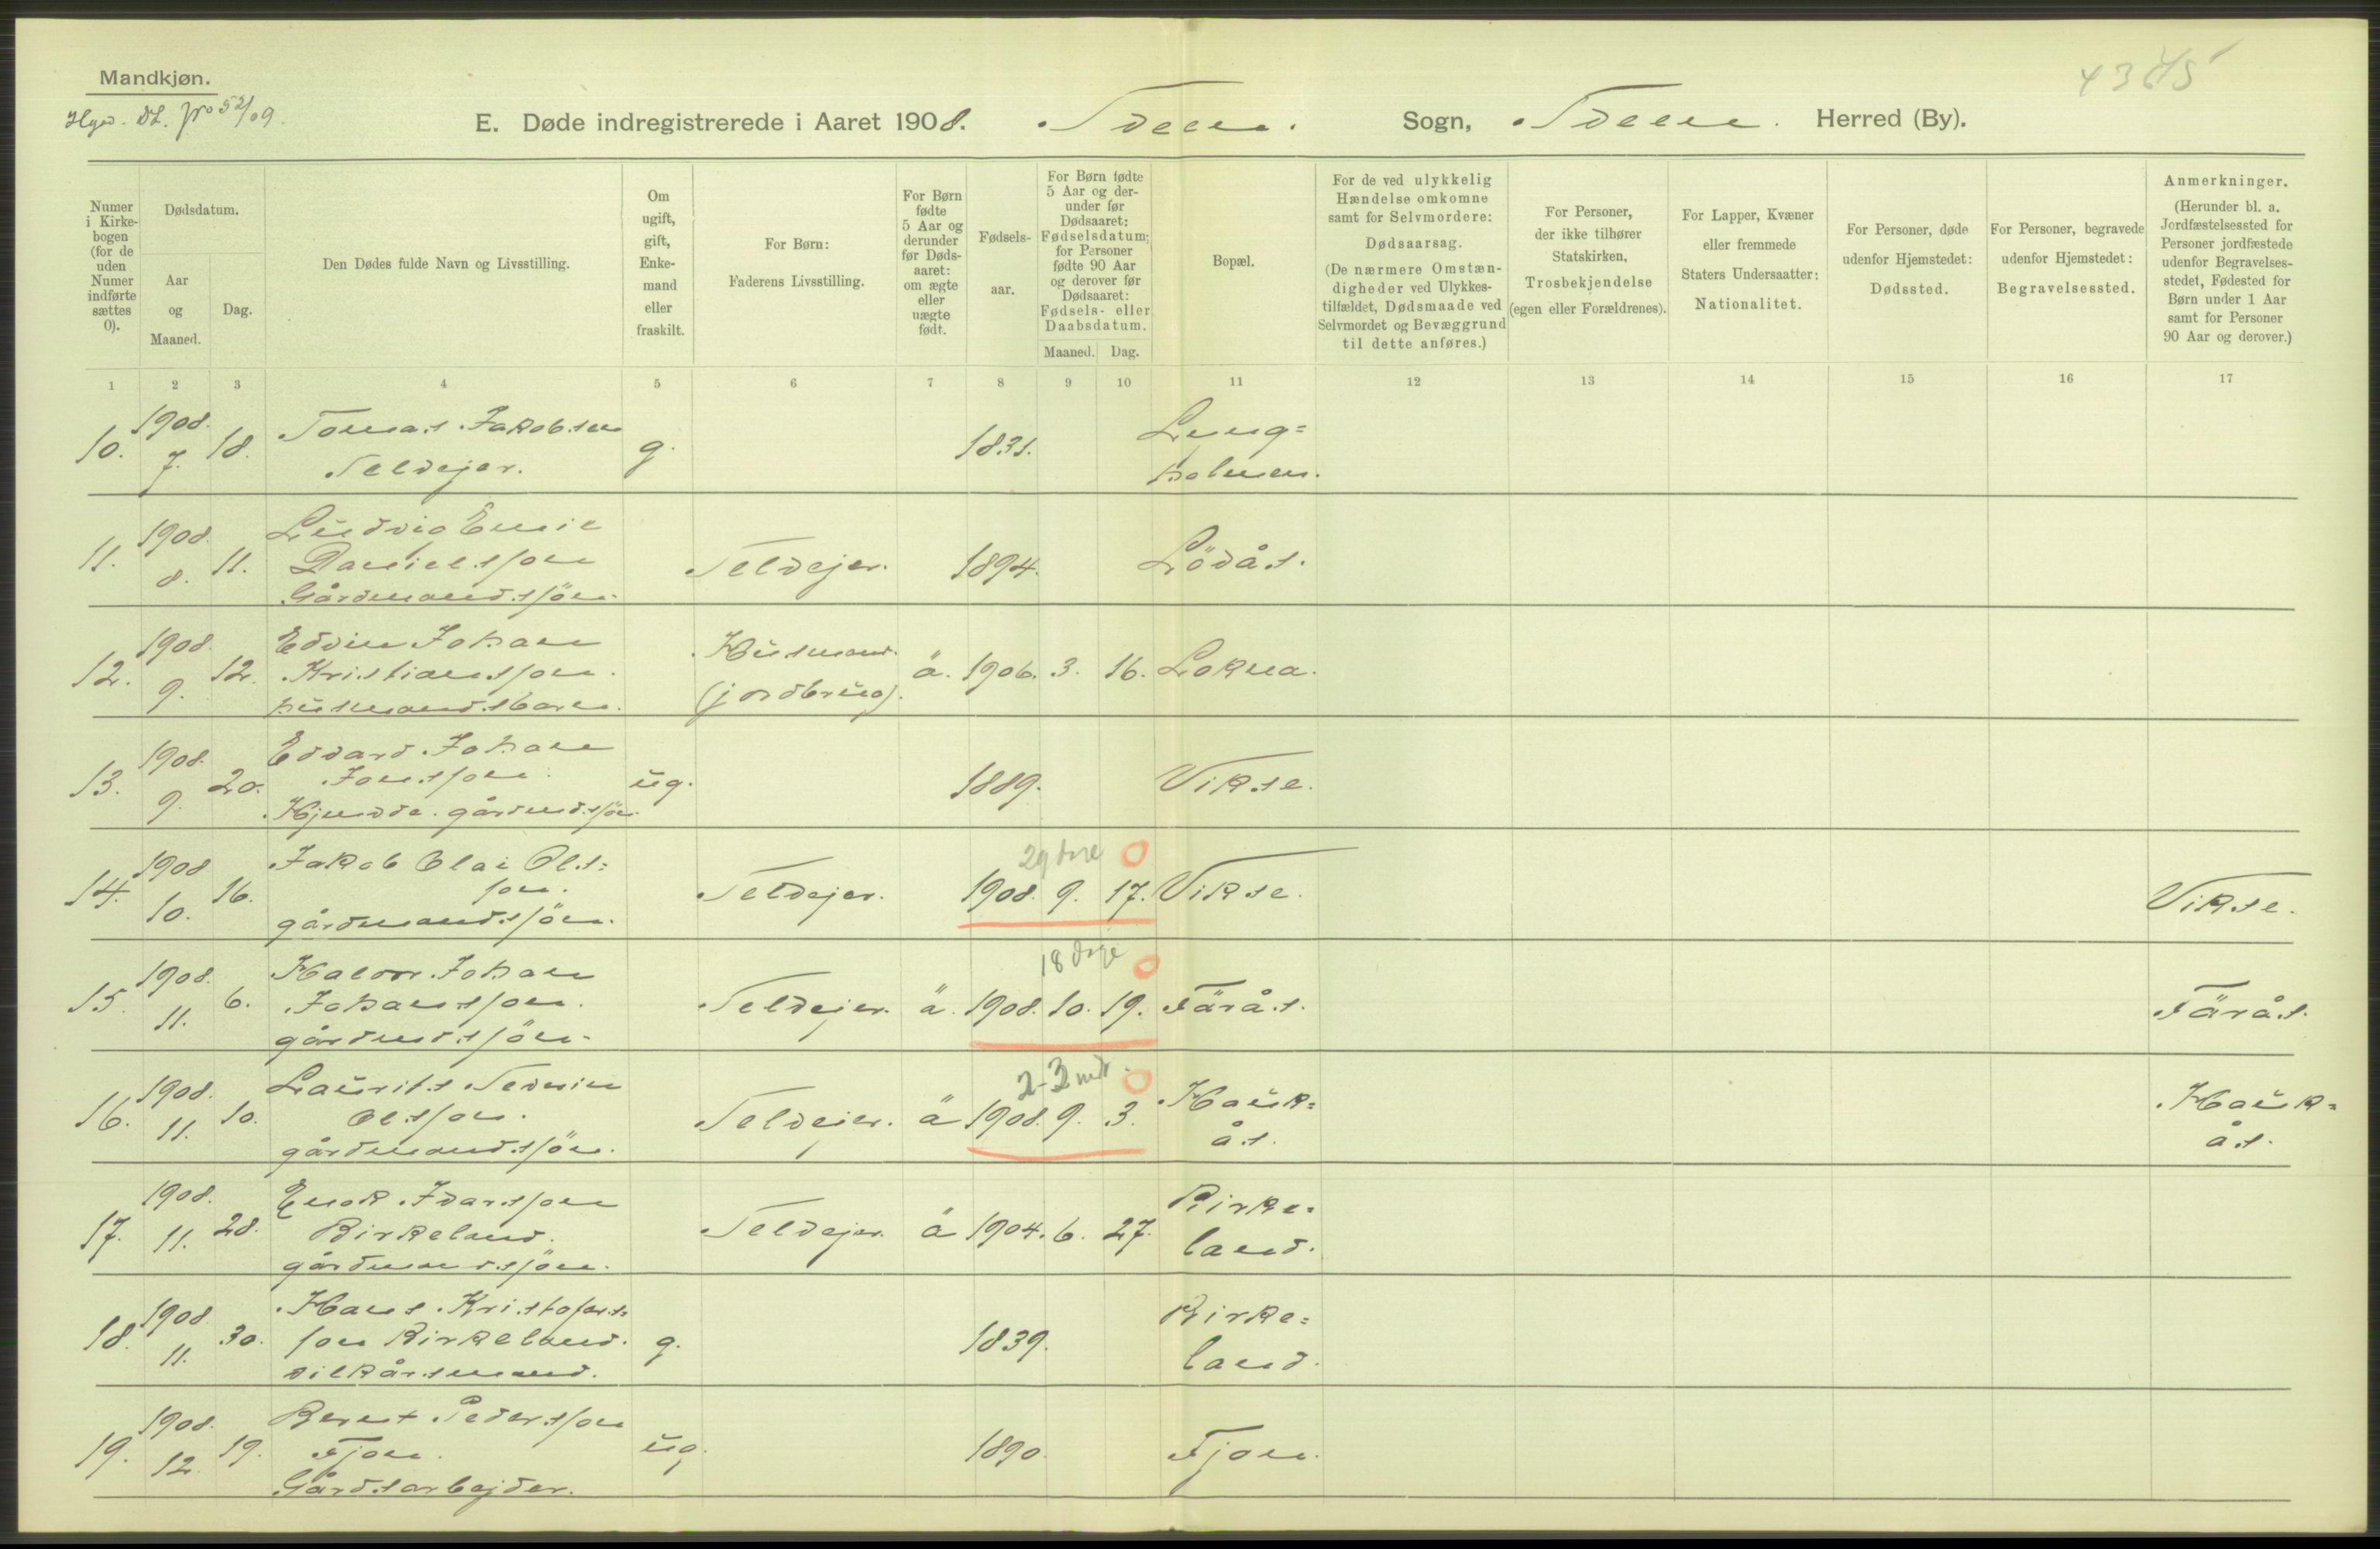 Mandkjøn.
No 52/09.
4385
E. Døde indregistrerede i Aaret 1908. Sveen. Sogn, Sveen. Herred (By).
Numer i Kirkebogen (for de uden Numer indførte sættes 0).
Dødsdatum.
Aar og Maaned.
Dag.
Den Dødes fulde Navn og Livsstilling.
Om ugift, gift, Enkemand eller fraskilt.
For Børn: Faderens Livsstilling.
For Børn fødte 5 Aar og derunder før Dødsaaret: om ægte eller uægte født.
Fødselsaar.
For Børn fødte 5 Aar og derunder før Dødsaaret: Fødselsdatum; for Personer fødte 90 Aar og derover før Dødsaaret: Fødsels- eller Daabsdatum.
Maaned. Dag.
Bopæl.
For de ved ulykkelig Hændelse omkomne samt for Selvmordere: Dødsaarsag. (De nærmere Omstændigheder ved Ulykkestilfældet, Dødsmaade ved Selvmordet og Bevæggrund til dette anføres.)
For Personer, der ikke tilhører Statskirken, Trosbekjendelse (egen eller Forældrenes).
For Lapper, Kvæner eller fremmede Staters Undersaatter: Nationalitet.
For Personer, døde udenfor Hjemstedet: Dødssted.
For Personer, begravede udenfor Hjemstedet: Begravelsessted.
Anmerkninger. (Herunder bl. a. Jordfæstelsessted for Personer jordfæstede udenfor Begravelsesstedet, Fødested for Børn under 1 Aar samt for Personer 90 Aar og derover.)
1 2 3 4 5 6 7 8 9 10 11 12 13 14 15 16 17
10. 1908. 7. 18. Tomas Jakobsen Selvejer. g. 1831. Lyngholmen.
11. 1908. 8. 11. Ludvig Emil Danielsson Gårdmandssön. Selvejer. 1894. Lödås.
12. 1908. 9. 12. Edvin Johan Kristiansson. husmandsbarn. Husmand. (jordbrug). ä. 1906. 3. 16. Lokna.
13. 1908. 9. 20. Edvard Johan Jonsson. gårdmdssön. ug. 1889. Vikse.
14. 1908 10. 16. Jakob Olai Olsson. gårdmandssön. Selvejer. 1908. 9. 17. Vikse. Vikse.
29 dage
15. 1908. 11. 6. Halvor Johan Johansson. gårdmdssön. Selvejer. ä. 1908. 10. 19. Färås. Färås.
18 dage
16. 1908. 11. 10. Laurits Severin Olsson. gårdmandssön. Selveier. ä 1908. 9. 3. Haukås. Haukås.
2-3 mdr.
17. 1908. 11. 28. Enok Ivarsson Birkeland. gårdmandssön. Selvejer. ä 1904. 6. 27. Birkeland.
18. 1908 11. 30. Hans Kristofersson Birkeland. vilkårsmand. g. 1839. Birkeland.
19. 1908. 12. 19. Berent Pedersson Fjon. Gårdsarbejder. ug. 1890. Fjon.